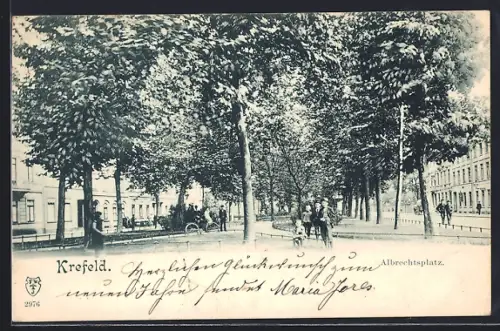 Krefeld.
Albrechtsplatz.
Herzlichen Glückwunsch zum
neuen Jahre sendet Maria Jores.
2976